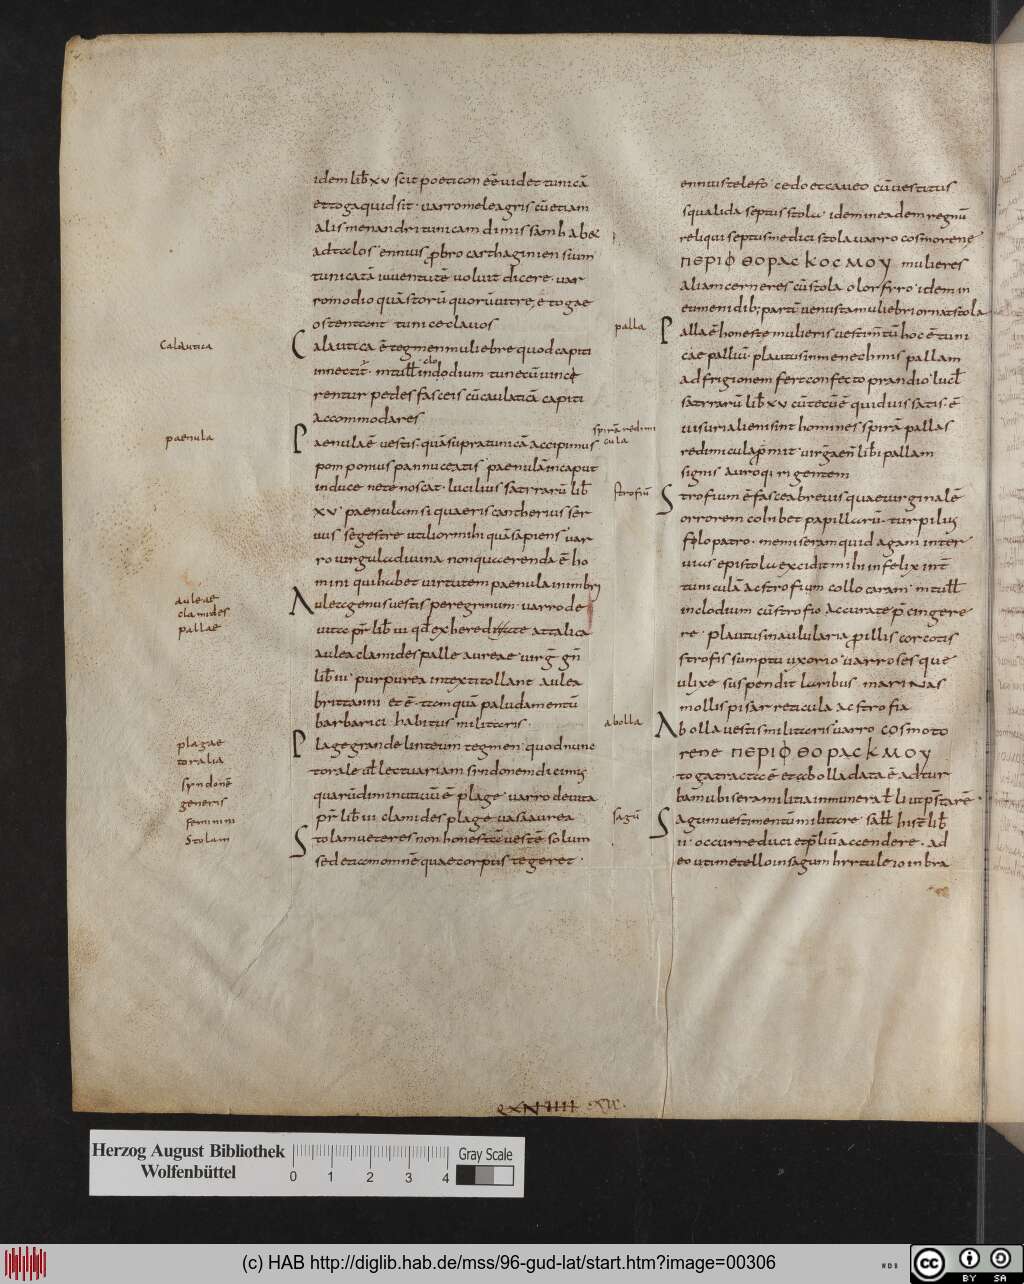 idem lib̄ xv scit poeticon eē videt tunicā
et toga quid sit · varro meleagris cū etiam
alis menandri tunicam dimissam habet
ad talos ennius probro carthaginiensium
tunicatā iuventutē voluit dicere · var
ro modio quā istorū quorū vitreę togae
ostentant tunice clavos
Calautica
Calautica ē tegmen muliebre quod capiti
innectit · in tull̄ in clodium tunc cū vince
rentur pedes fasceis cū caulaticā capiti
accommodares
paenula
Paenula ē vestis · quā supra tunicā accipimus
pomponius pannuceatis paenulā in caput
induce ne te noscat · lucilius satirarū lib̄
xv · paenulam si quaeris cantherius ser
vus segestre utilior mihi quā sapiens var
ro virgula divina non quaerenda ē ho
mini qui habet virtutem paenula in imbri
auleae
clamides
pallae
Aulea genus vestis peregrinum · varro de
vita pr̄ lib̄ iii qđ ex hereditate attalica
aulea clamides palle aureae virḡ gn̄
lib̄ iii purpurea intexti tollant aulea
brittanni et ē · tamquā paludamentū
barbarici habitus militaris ·
plagae
toralia
syndonē
generis
feminini
Plage grande linteum tegmen quod nunc
torale ul̄ lectuariam syndonem dicimus
quarū diminutivū ē plage varro de vita
pr̄ lib̄ iii clamides plage vasa aurea
Stolam
Stolam veteres non honestā vestē solum
sed etiam omnē quae corpus tegeret ·
ennius telefo cedo et caveo cū vestitus
squalida septus stola · idem in eadem regnū
reliqui septus medici stola varro cosmorene
ΠΕΡΙΦΘΟΡΑϹ ΚΟϹΜΟΥ mulieres
aliam cerneres cū stola olorfrro idem in
eumenidib; partī venusta muliebri ornat stola
palla
Palla ē honeste mulieris vestimtū hoc ē tuni
cae palliū · plautus in menechmis pallam
ad frigionem fert confecto prandio lucł
satirarū lib̄ xv cū tecū ē quidvis satis ē
spirā redimi
cula
visuri alieni sint homines spirā pallas
redimicula promit virḡ aen̄ lib̄ i pallam
signis auroq; rigentem
strofiū
Strofium ē fascea brevis quae virginalē
orrorem cohibet papillarū · turpilius
filopatro · memiseram quid agam inter
vias epistola excidit mihi infelix int̄
tuniculā ac strofium collo caram in tull̄
in clodium cū strofio accurate p̄cingere
re · plautus in aulularia pro illis corcotis
strofis sumptu uxorio varro sesque
ulixe suspendit laribus marinas
mollis pilas reticula ac strofia
abolla
Abolla vestis militaris varro cosmoto
rene ΠΕΡΙΦΘΟΡΑϹ ΚΜΟΥ
toga tracta ē et abolla data ē ad tur
bam ubi sera militia in munera b̄ li ut p̄starē ·
sagū
Sagum vestimentū militare sall̄ hist̄ lib̄
ii occurre duci et p̄liū accendere · ad
eo uti metello in sagum hirtuleio in bra
Herzog August Bibliothek
Wolfenbüttel
0 1 2 3 4
Gray Scale
(c) HAB http://diglib.hab.de/mss/96-gud-lat/start.htm?image=00306
WDB
cc BY SA